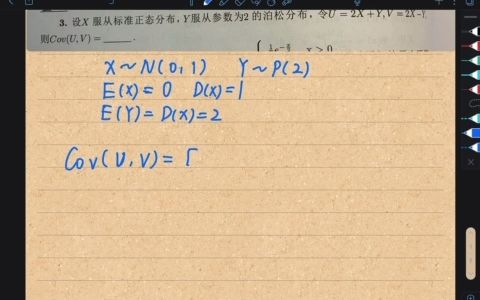 3. 设X 服从标准正态分布,Y服从参数为2 的泊松分布,令U = 2X + Y,V = 2X - Y,
则Cov(U,V) = ____.
x > 0
X ~ N(0,1) Y ~ P(2)
E(X) = 0 D(X) = 1
E(Y) = D(X) = 2
Cov(U,V) = [